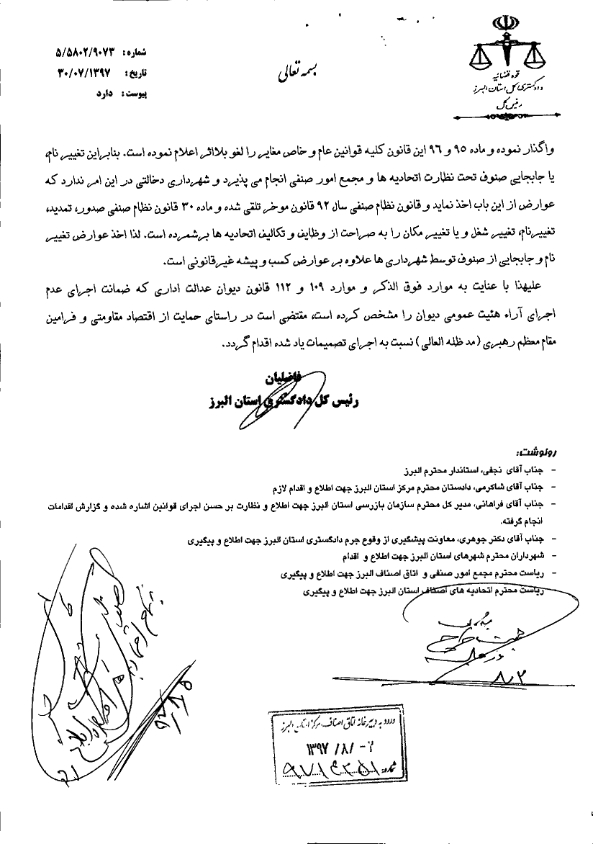 قوه قضائیه
دادگستری کل استان البرز
رئیس کل
بسمه تعالی
شماره: ۵/۵۸۰۲/۹۰۷۳
تاریخ: ۳۰/۰۷/۱۳۹۷
پیوست: دارد
واگذار نموده و ماده ۹۵ و ۹۶ این قانون کلیه قوانین عام و خاص مغایر را لغو بلااثر اعلام نموده است. بنابراین تغییر نام،
یا جابجایی صنوف تحت نظارت اتحادیه ها و مجمع امور صنفی انجام می پذیرد و شهرداری دخالتی در این امر ندارد که
عوارض از این باب اخذ نماید و قانون نظام صنفی سال ۹۲ قانون موخر تلقی شده و ماده ۳۰ قانون نظام صنفی صدور، تمدید،
تغییرنام، تغییر شغل و یا تغییر مکان را به صراحت از وظایف و تکالیف اتحادیه ها برشمرده است. لذا اخذ عوارض تغییر
نام و جابجایی از صنوف توسط شهرداری ها علاوه بر عوارض کسب و پیشه غیرقانونی است.
علیهذا با عنایت به موارد فوق الذکر و موارد ۱۰۹ و ۱۱۲ قانون دیوان عدالت اداری که ضمانت اجرای عدم
اجرای آراء هئیت عمومی دیوان را مشخص کرده است، مقتضی است در راستای حمایت از اقتصاد مقاومتی و فرامین
مقام معظم رهبری (مد ظله العالی) نسبت به اجرای تصمیمات یاد شده اقدام گردد.
فاضلیان
رئیس کل دادگستری استان البرز
رونوشت:
- جناب آقای نجفی، استاندار محترم البرز
- جناب آقای شاکرمی، دادستان محترم مرکز استان البرز جهت اطلاع و اقدام لازم
- جناب آقای فراهانی، مدیر کل محترم سازمان بازرسی استان البرز جهت اطلاع و نظارت بر حسن اجرای قوانین اشاره شده و گزارش اقدامات
انجام گرفته.
- جناب آقای دکتر جوهری، معاونت پیشگیری از وقوع جرم دادگستری استان البرز جهت اطلاع و پیگیری
- شهرداران محترم شهرهای استان البرز جهت اطلاع و اقدام
- ریاست محترم مجمع امور صنفی و اتاق اصناف البرز جهت اطلاع و پیگیری
ریاست محترم اتحادیه های اصناف استان البرز جهت اطلاع و پیگیری
۸/۲
ورود به دبیرخانه اتاق اصناف مرکز استان البرز
۱۳۹۷ /۸/ -۲
شماره: